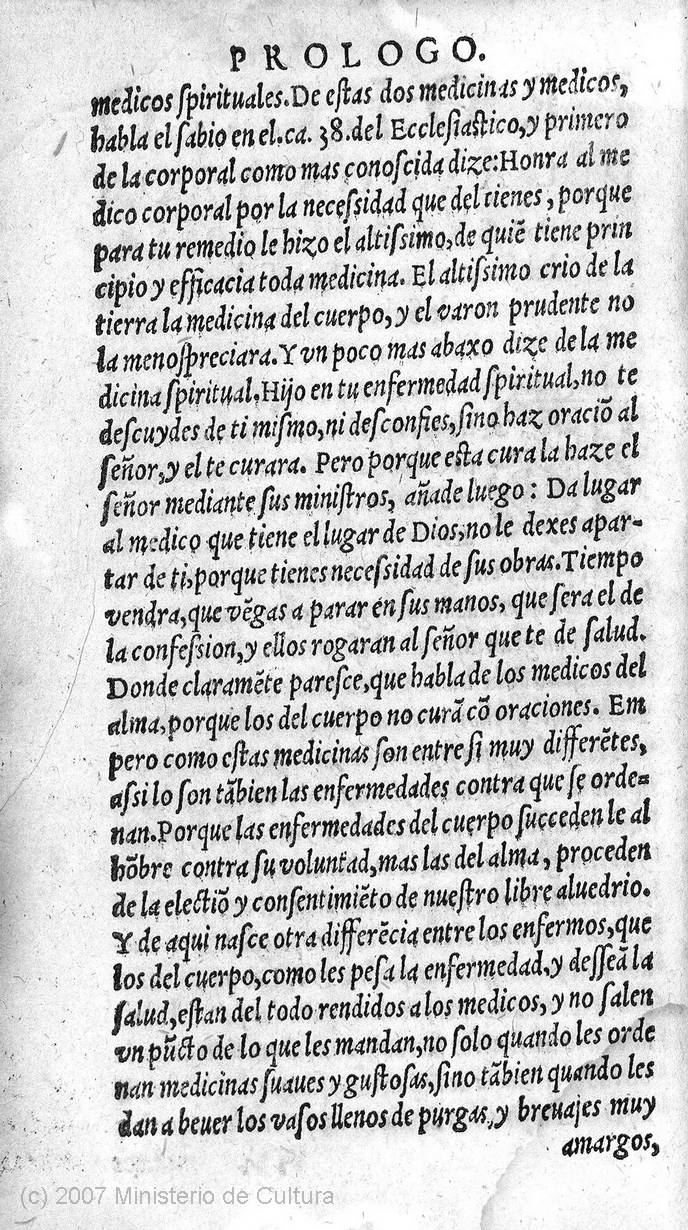 PROLOGO.
medicos ſpirituales.De eſtas dos medicinas y medicos,
habla el ſabio en el.ca. 38.del Eccleſiaſtico,y primero
de la corporal como mas conoſcida dize:Honra al me
dico corporal por la neceſsidad que del tienes, porque
para tu remedio le hizo el altiſsimo,de quiẽ tiene prin
cipio y efficacia toda medicina. El altiſsimo crio de la
tierra la medicina del cuerpo,y el varon prudente no
la menoſpreciara.Y vn poco mas abaxo dize de la me
dicina ſpiritual,Hijo en tu enfermedad ſpiritual,no te
deſcuydes de ti miſmo,ni deſconfies,ſino haz oraciõ al
ſeñor,y el te curara. Pero porque eſta cura la haze el
ſeñor mediante ſus miniſtros, añade luego: Da lugar
al medico que tiene el lugar de Dios,no le dexes apar-
tar de ti,porque tienes neceſsidad de ſus obras.Tiempo
vendra,que vẽgas a parar en ſus manos, que ſera el de
la confeſsion,y ellos rogaran al ſeñor que te de ſalud.
Donde claramẽte pareſce,que habla de los medicos del
alma,porque los del cuerpo no curã cõ oraciones. Em
pero como eſtas medicinas ſon entre ſi muy differẽtes,
aſsi lo ſon tãbien las enfermedades contra que ſe orde=
nan.Porque las enfermedades del cuerpo ſucceden le al
hõbre contra ſu voluntad,mas las del alma, proceden
de la electiõ y conſentimiẽto de nueſtro libre aluedrio.
Y de aqui naſce otra differẽcia entre los enfermos,que
los del cuerpo,como les peſa la enfermedad,y deſſeã la
ſalud,eſtan del todo rendidos a los medicos, y no ſalen
vn pũcto de lo que les mandan,no ſolo quando les orde
nan medicinas ſuaues y guſtoſas,ſino tãbien quando les
dan a beuer los vaſos llenos de purgas,y brevajes muy
amargos,
(c) 2007 Ministerio de Cultura